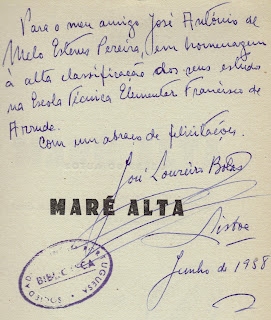 Para o meu amigo José António de
Melo Esteves Pereira, em homenagem
à alta classificação dos seus estudos
na Escola Técnica Elementar Francisco de
Arruda.
Com um abraço de felicitações.
José Loureiro Botas
MARÉ ALTA
Lisboa
Junho de 1958
BIBLIOTECA
SOCIEDADE PORTUGUESA